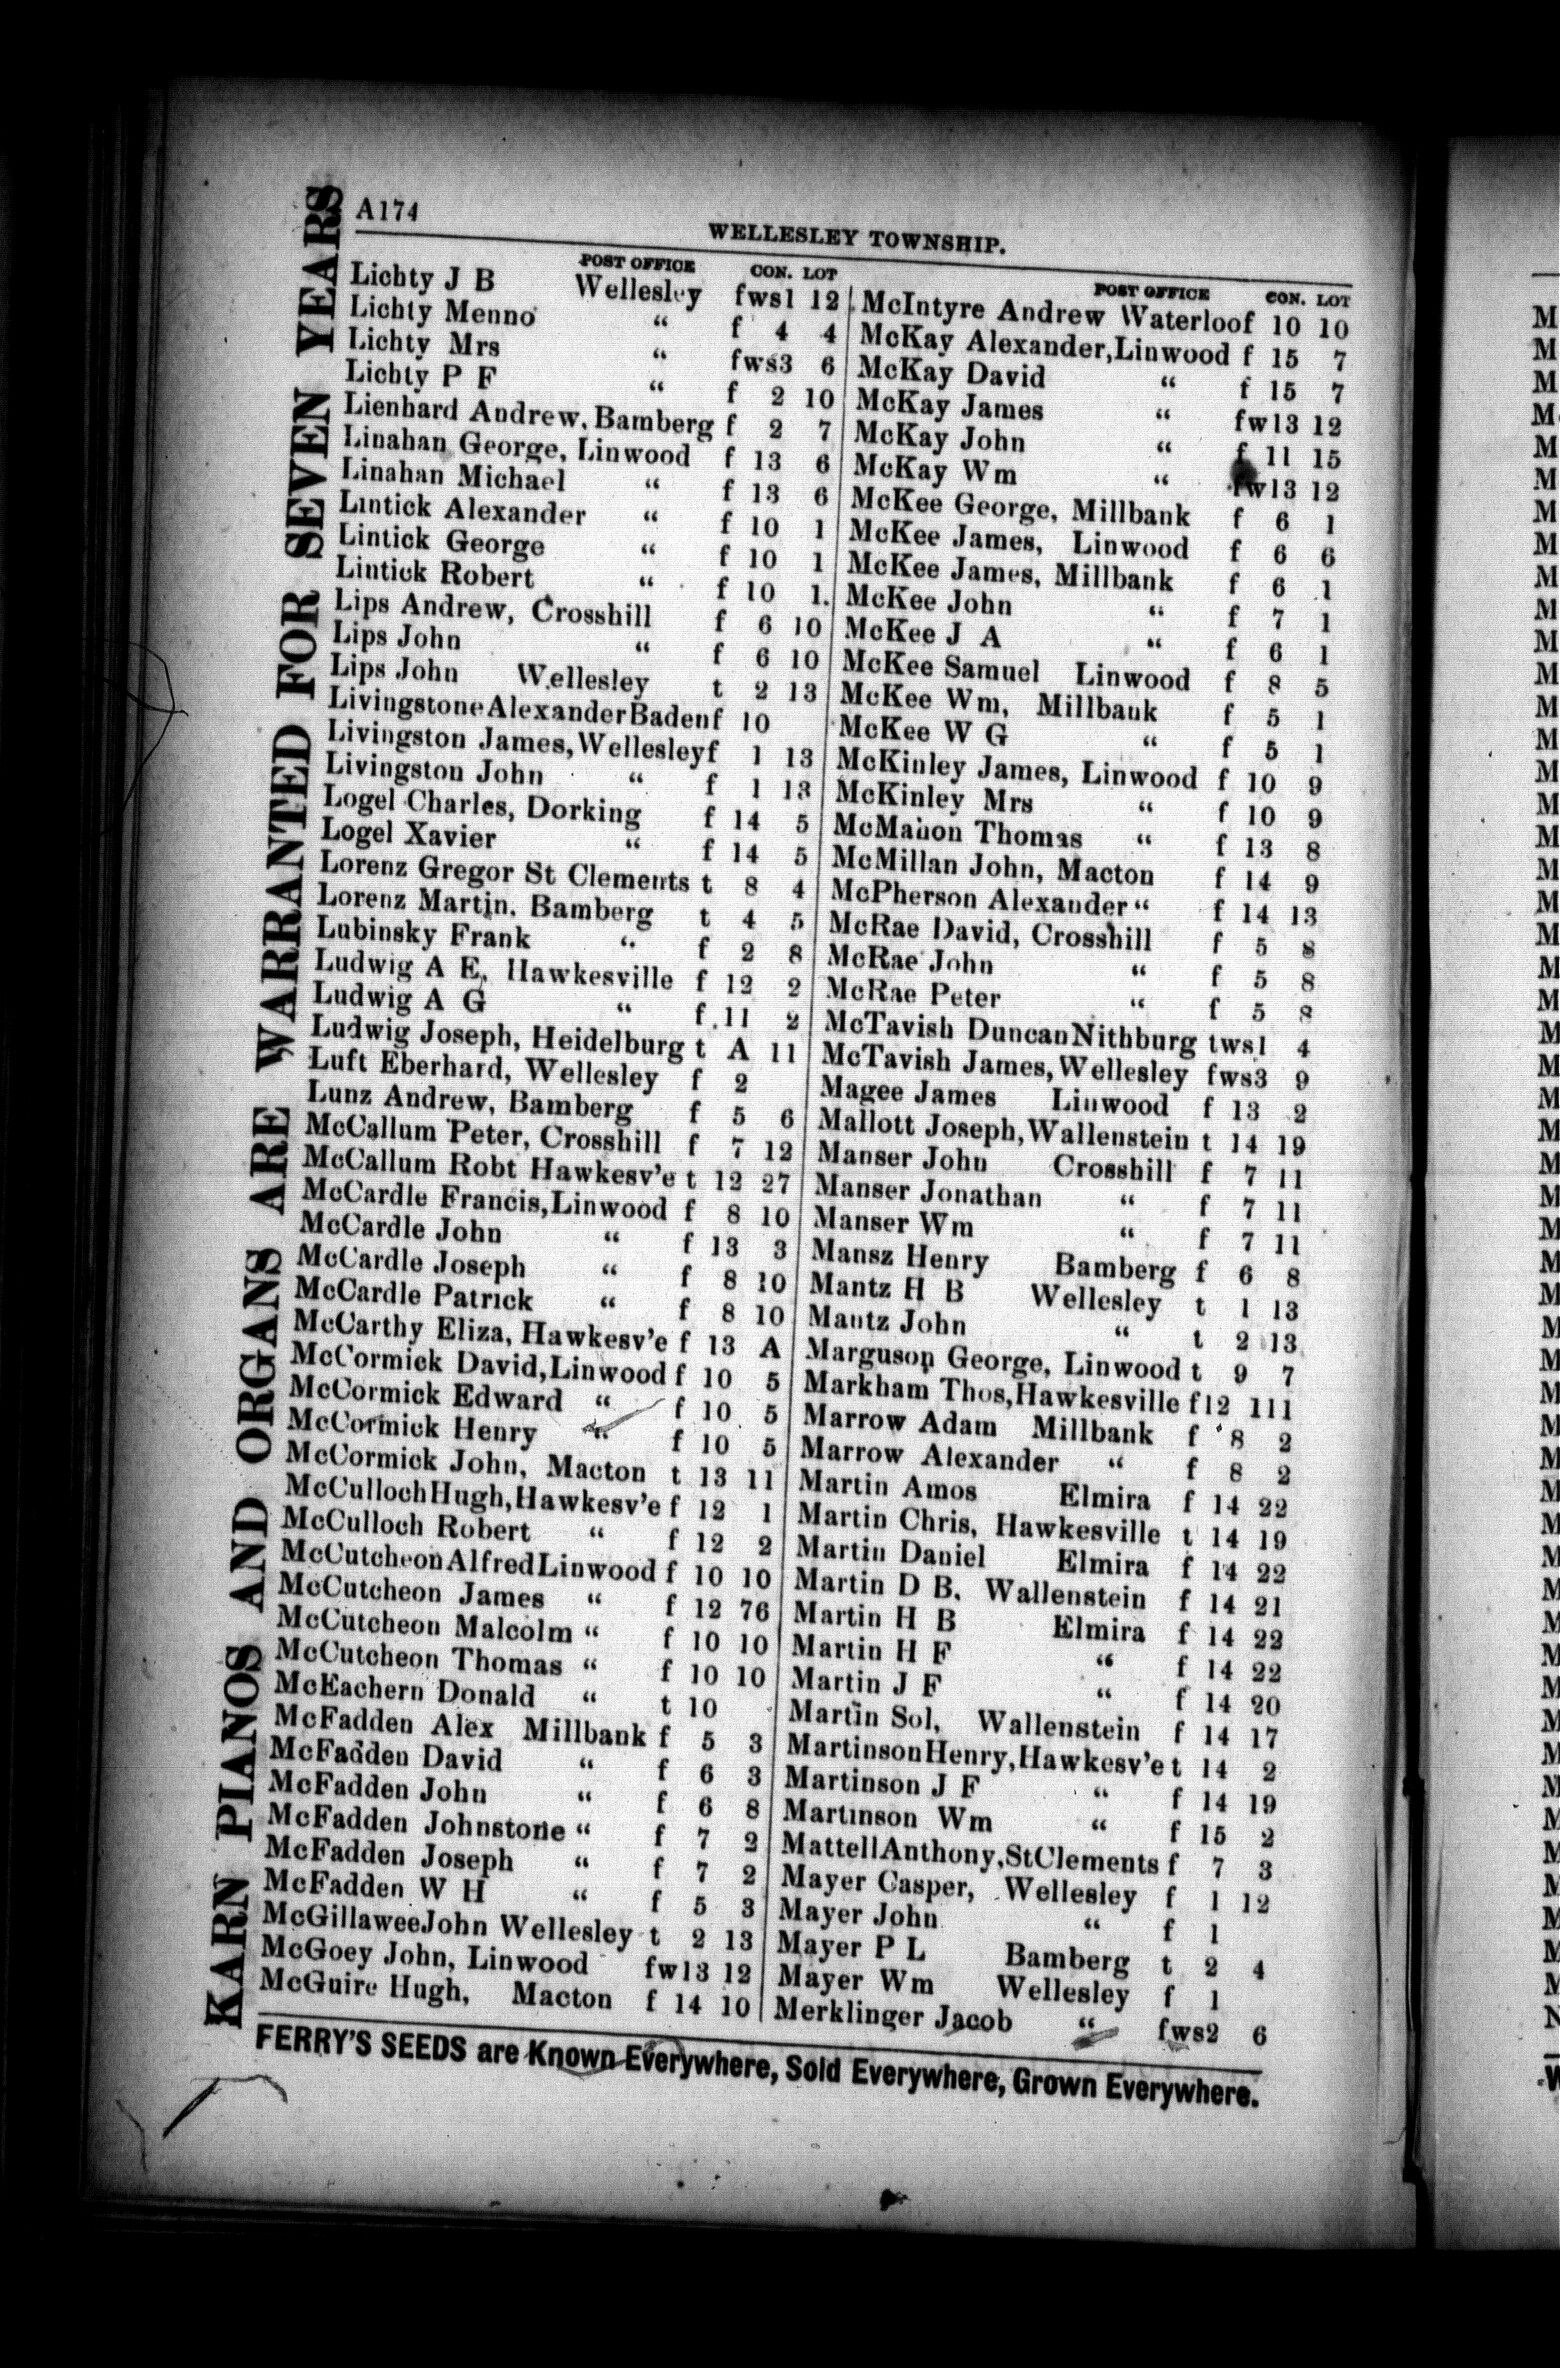 A174
WELLESLEY TOWNSHIP.
POST OFFICE CON. LOT
Lichty J B Wellesley fws1 12
Lichty Menno “ f 4 4
Lichty Mrs “ fws3 6
Lichty P F “ f 2 10
Lienhard Andrew, Bamberg f 2 7
Linahan George, Linwood f 13 6
Linahan Michael “ f 13 6
Lintick Alexander “ f 10 1
Lintick George “ f 10 1
Lintick Robert “ f 10 1.
Lips Andrew, Crosshill f 6 10
Lips John “ f 6 10
Lips John Wellesley t 2 13
Livingstone Alexander Baden f 10
Livingston James, Wellesley f 1 13
Livingston John “ f 1 13
Logel Charles, Dorking f 14 5
Logel Xavier “ f 14 5
Lorenz Gregor St Clements t 8 4
Lorenz Martin. Bamberg t 4 5
Lubinsky Frank “ f 2 8
Ludwig A E, Hawkesville f 12 2
Ludwig A G “ f 11 2
Ludwig Joseph, Heidelburg t A 11
Luft Eberhard, Wellesley f 2
Lunz Andrew, Bamberg f 5 6
McCallum Peter, Crosshill f 7 12
McCallum Robt Hawkesv'e t 12 27
McCardle Francis, Linwood f 8 10
McCardle John “ f 13 3
McCardle Joseph “ f 8 10
McCardle Patrick “ f 8 10
McCarthy Eliza, Hawkesv'e f 13 A
McCormick David, Linwood f 10 5
McCormick Edward “ f 10 5
McCormick Henry “ f 10 5
McCormick John, Macton t 13 11
McCulloch Hugh, Hawkesv'e f 12 1
McCulloch Robert “ f 12 2
McCutcheon Alfred Linwood f 10 10
McCutcheon James “ f 12 76
McCutcheon Malcolm “ f 10 10
McCutcheon Thomas “ f 10 10
McEachern Donald “ t 10
McFadden Alex Millbank f 5 3
McFadden David “ f 6 3
McFadden John “ f 6 8
McFadden Johnstone “ f 7 2
McFadden Joseph “ f 7 2
McFadden W H “ f 5 3
McGillawee John Wellesley t 2 13
McGoey John, Linwood fw13 12
McGuire Hugh, Macton f 14 10
POST OFFICE CON. LOT
McIntyre Andrew Waterloo f 10 10
McKay Alexander, Linwood f 15 7
McKay David “ f 15 7
McKay James “ fw13 12
McKay John “ f 11 15
McKay Wm “ fw13 12
McKee George, Millbank f 6 1
McKee James, Linwood f 6 6
McKee James, Millbank f 6 1
McKee John “ f 7 1
McKee J A “ f 6 1
McKee Samuel Linwood f 8 5
McKee Wm, Millbank f 5 1
McKee W G “ f 5 1
McKinley James, Linwood f 10 9
McKinley Mrs “ f 10 9
McMahon Thomas “ f 13 8
McMillan John, Macton f 14 9
McPherson Alexander “ f 14 13
McRae David, Crosshill f 5 8
McRae John “ f 5 8
McRae Peter “ f 5 8
McTavish Duncan Nithburg tws1 4
McTavish James, Wellesley fws3 9
Magee James Linwood f 13 2
Mallott Joseph, Wallenstein t 14 19
Manser John Crosshill f 7 11
Manser Jonathan “ f 7 11
Manser Wm “ f 7 11
Mansz Henry Bamberg f 6 8
Mantz H B Wellesley t 1 13
Mantz John “ t 2 13
Marguson George, Linwood t 9 7
Markham Thos, Hawkesville f12 111
Marrow Adam Millbank f 8 2
Marrow Alexander “ f 8 2
Martin Amos Elmira f 14 22
Martin Chris, Hawkesville t 14 19
Martin Daniel Elmira f 14 22
Martin D B, Wallenstein f 14 21
Martin H B Elmira f 14 22
Martin H F “ f 14 22
Martin J F “ f 14 20
Martin Sol, Wallenstein f 14 17
Martinson Henry, Hawkesv'e t 14 2
Martinson J F “ f 14 19
Martinson Wm “ f 15 2
Mattell Anthony, St Clements f 7 3
Mayer Casper, Wellesley f 1 12
Mayer John “ f 1
Mayer P L Bamberg t 2 4
Mayer Wm Wellesley f 1
Merklinger Jacob “ fws2 6
KARN PIANOS AND ORGANS ARE WARRANTED FOR SEVEN YEARS
FERRY'S SEEDS are Known Everywhere, Sold Everywhere, Grown Everywhere.